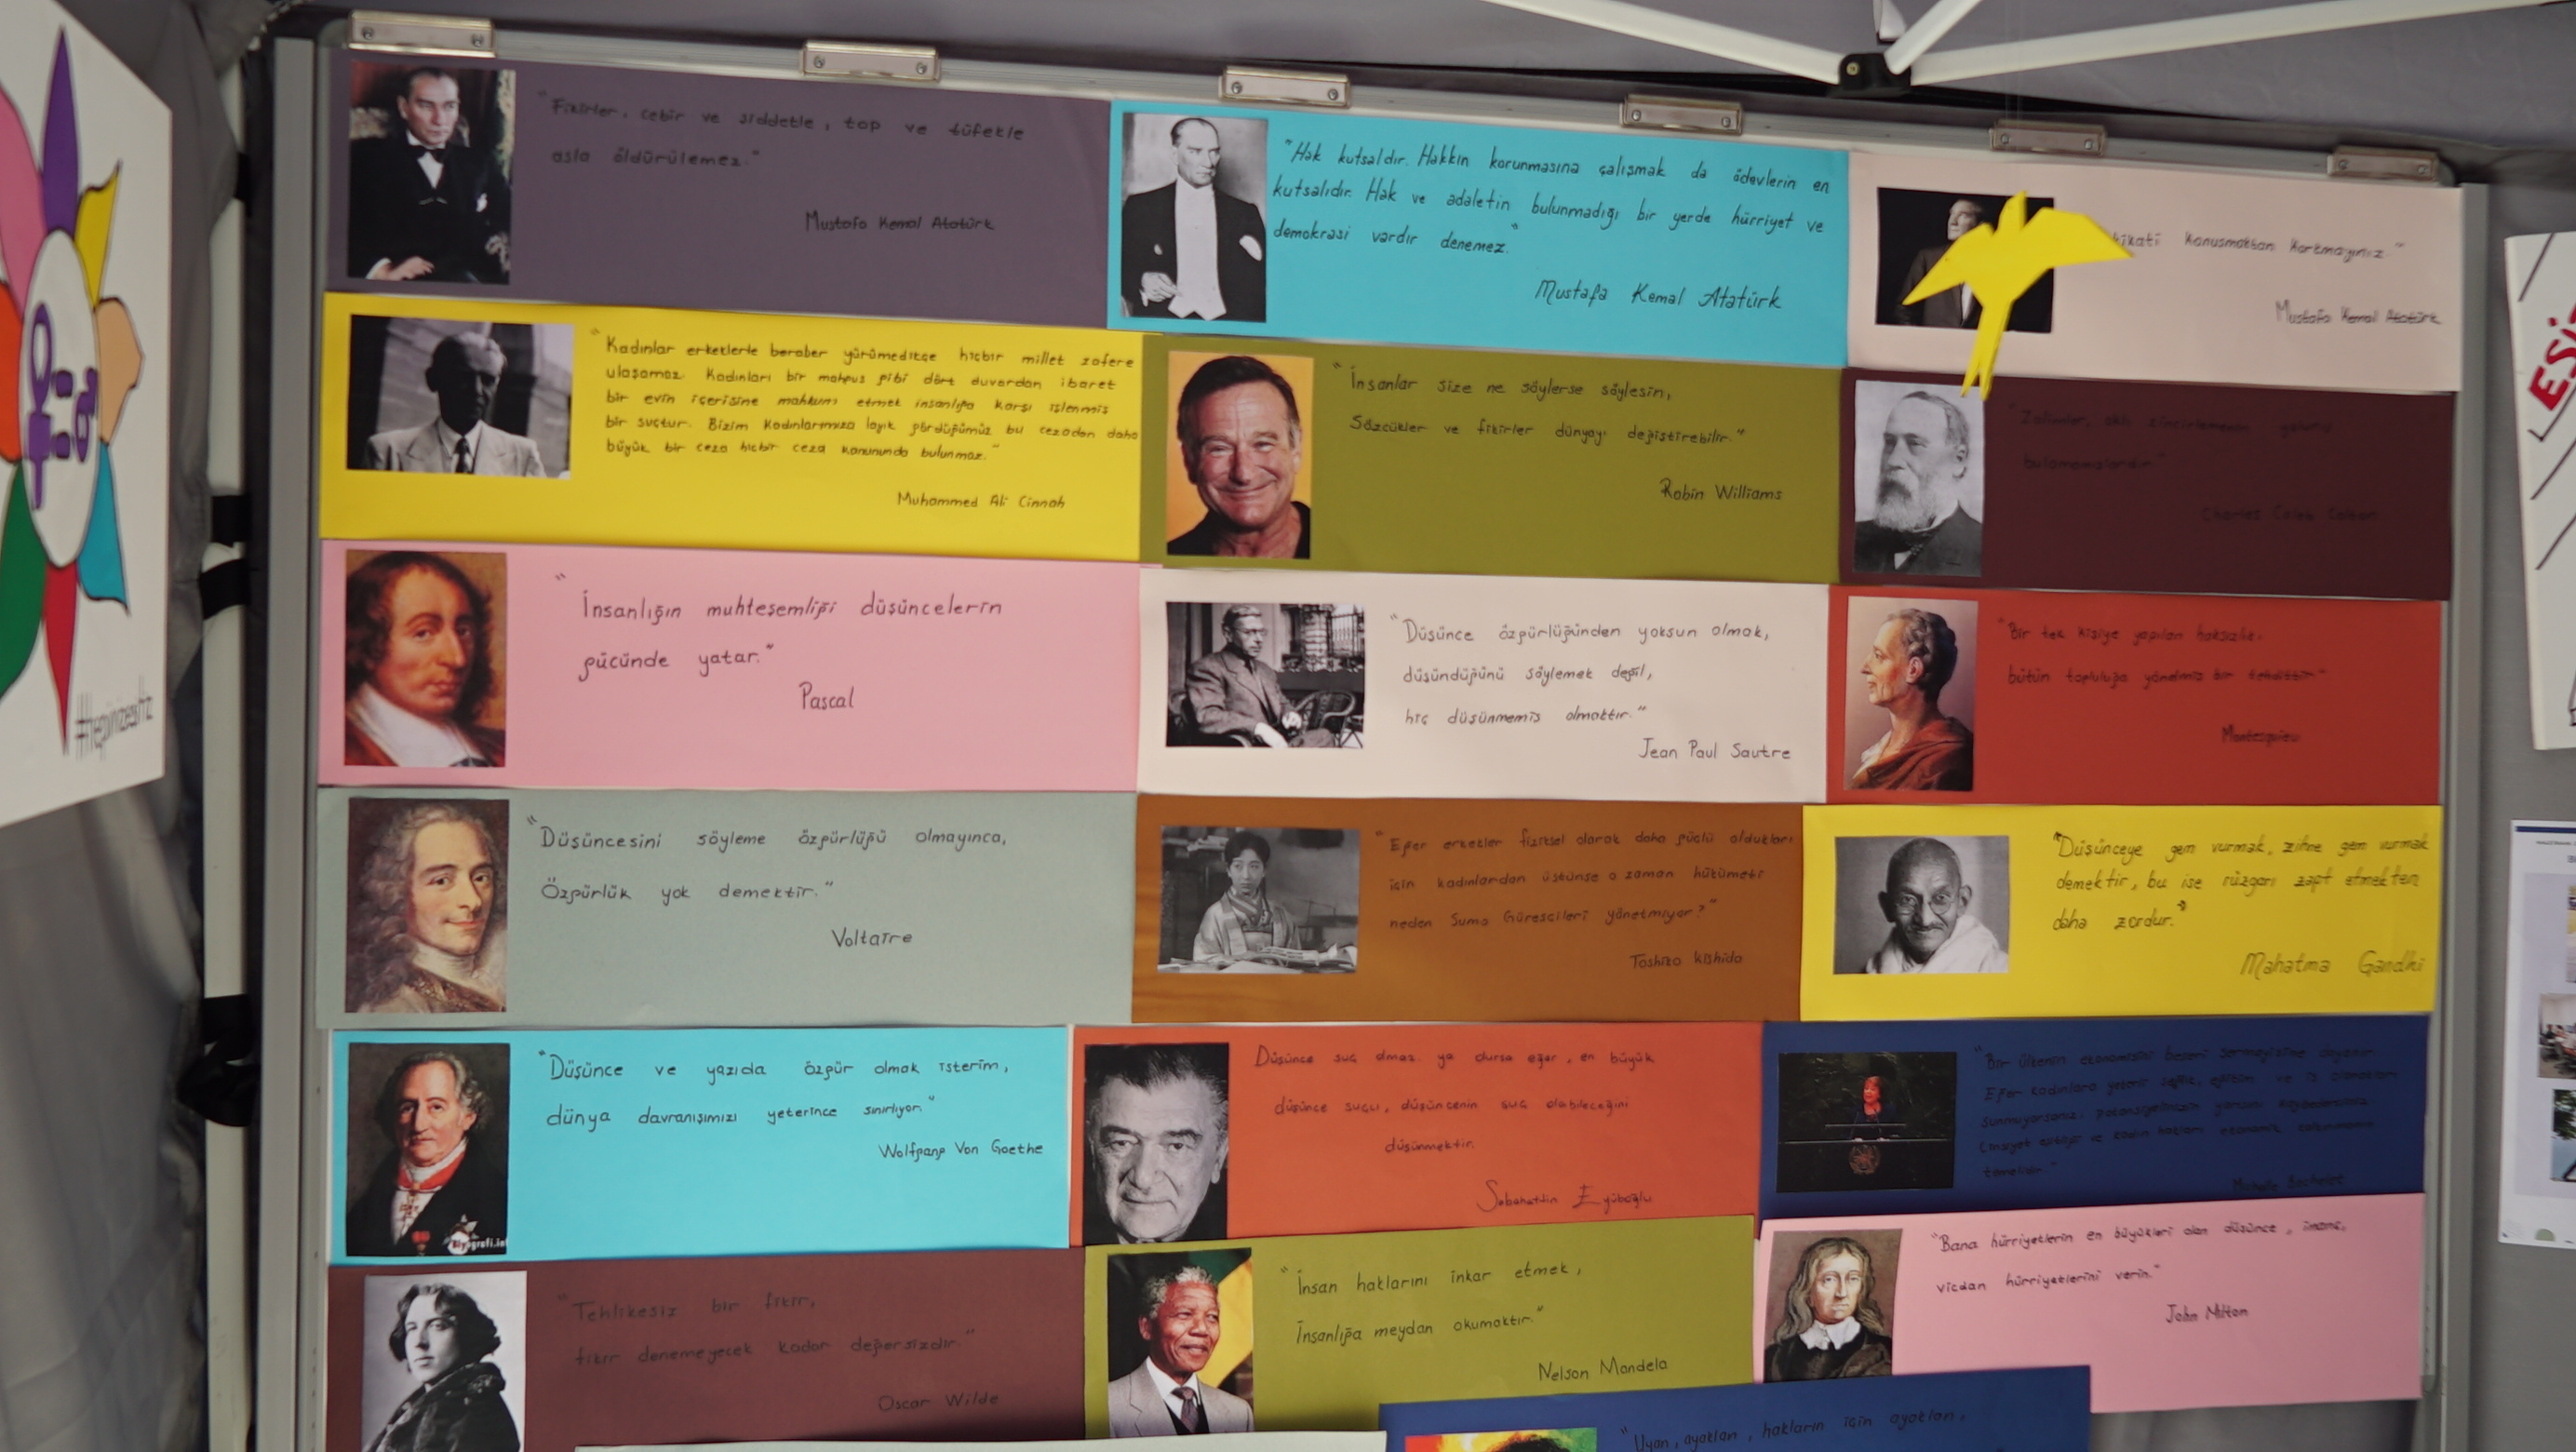 "Fikirler, cebir ve şiddetle, top ve tüfekle
asla öldürülemez."
Mustafa Kemal Atatürk
"Hak kutsaldır. Hakkın korunmasına çalışmak da ödevlerin en
kutsalıdır. Hak ve adaletin bulunmadığı bir yerde hürriyet ve
demokrasi vardır denemez."
Mustafa Kemal Atatürk
konuşmaktan korkmayınız."
Mustafa Kemal Atatürk
"Kadınlar erkeklerle beraber yürümedikçe hiçbir millet zafere
ulaşamaz. Kadınları bir mahpus gibi dört duvardan ibaret
bir evin içerisine mahkum etmek insanlığa karşı işlenmiş
bir suçtur. Bizim kadınlarımıza layık gördüğümüz bu cezadan daha
büyük bir ceza hiçbir ceza kanununda bulunmaz."
Muhammed Ali Cinnah
"İnsanlar size ne söylerse söylesin,
Sözcükler ve fikirler dünyayı değiştirebilir."
Robin Williams
"Zalimler, aklı zincirlemenin yolunu
bulamamışlardır."
Charles Caleb Colton
"İnsanlığın muhteşemliği düşüncelerin
gücünde yatar."
Pascal
"Düşünce özgürlüğünden yoksun olmak,
düşündüğünü söylemek değil,
hiç düşünmemiş olmaktır."
Jean Paul Sautre
"Bir tek kişiye yapılan haksızlık,
bütün topluluğa yönelmiş bir tehdittir"
Montesquieu
"Düşüncesini söyleme özgürlüğü olmayınca,
Özgürlük yok demektir."
Voltaire
"Eğer erkekler fiziksel olarak daha güçlü oldukları
için kadınlardan üstünse o zaman hükümeti
neden Sumo Güreşcileri yönetmiyor?"
Toshiko Kishida
"Düşünceye gem vurmak, zihne gem vurmak
demektir, bu ise rüzgarı zapt etmekten
daha zordur."
Mahatma Gandhi
"Düşünce ve yazıda özgür olmak isterim,
dünya davranışımızı yeterince sınırlıyor."
Wolfgang Von Goethe
Biyografi.inf
Düşünce suç olmaz. ya olursa eğer, en büyük
düşünce suçu, düşüncenin suç olabileceğini
düşünmektir.
Sabahattin Eyüboğlu
"Bir ülkenin ekonomisini beşeri sermayesine dayanır
Eğer kadınlara yeterli sağlık, eğitim ve iş olanakları
sunmuyorsanız, potansiyelinizin yarısını kaybedersiniz
Cinsiyet eşitliği ve kadın hakları ekonomik kalkınmanın
temelidir."
Michelle Bachelet
"Tehlikesiz bir fikir,
fikir denemeyecek kadar değersizdir."
Oscar Wilde
"İnsan haklarını inkar etmek,
İnsanlığa meydan okumaktır."
Nelson Mandela
"Bana hürriyetlerin en büyükleri olan düşünce, inanç,
vicdan hürriyetlerini verin."
John Milton
"Uyan, ayaklan, hakların için ayaklan,
#hepimizesitiz